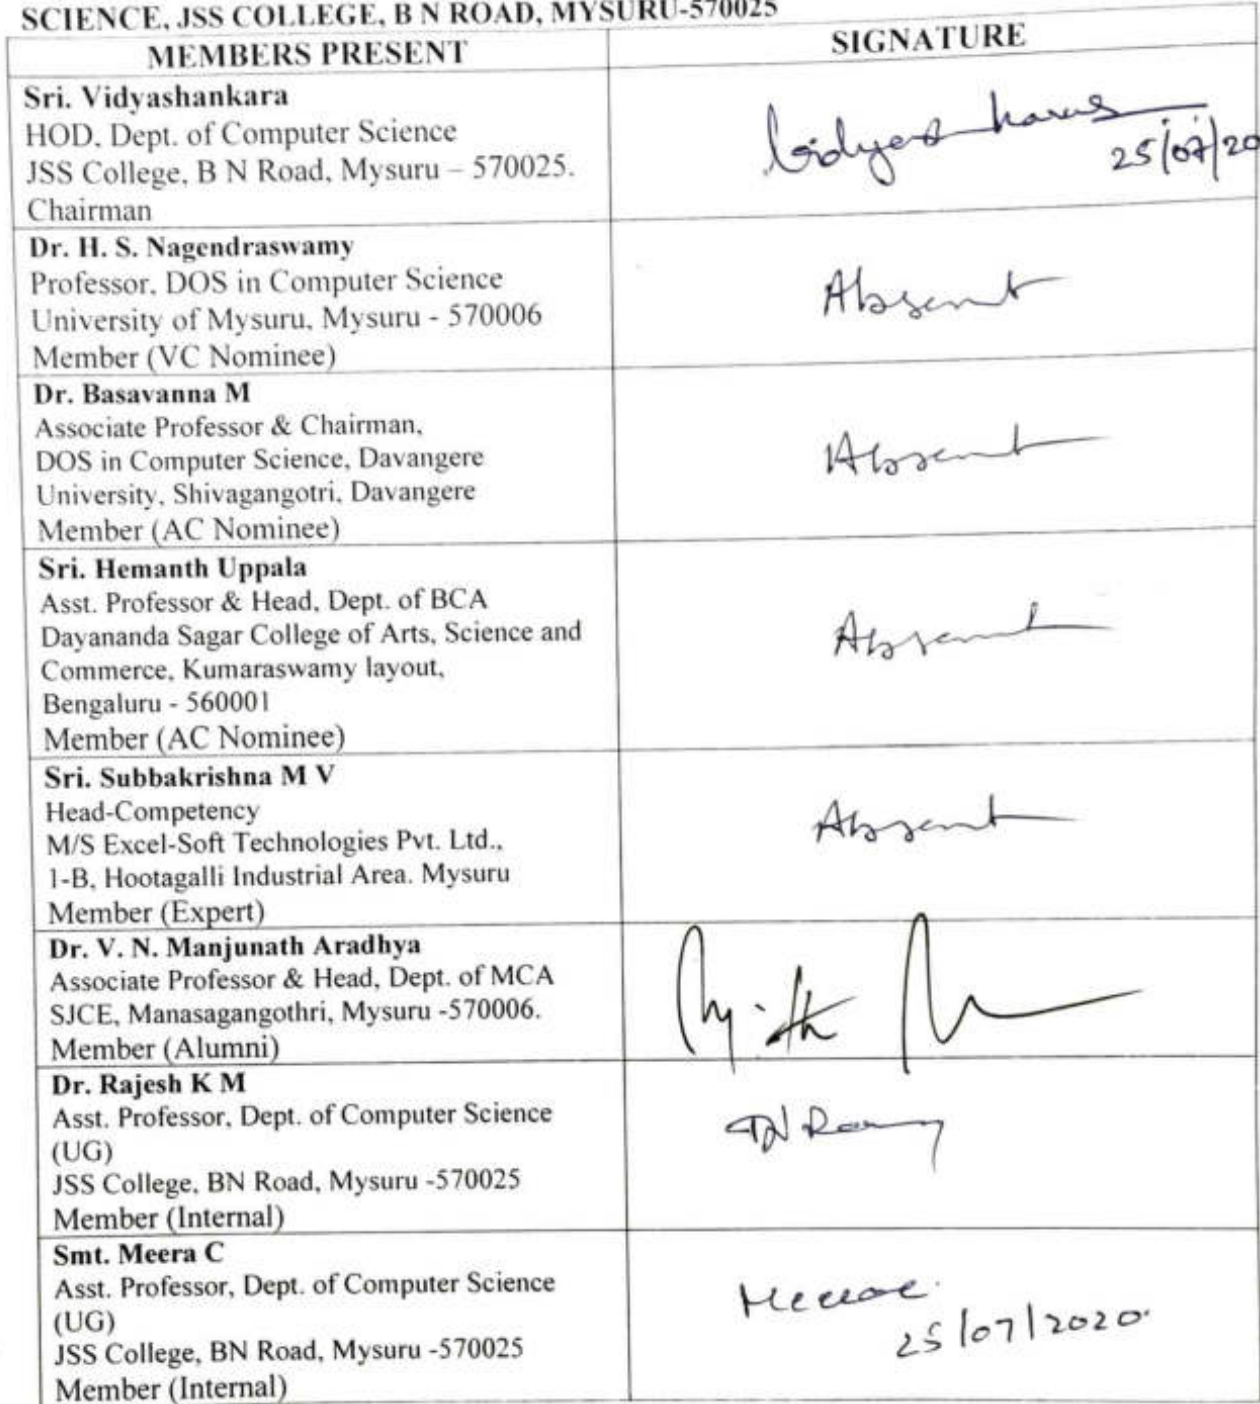 SCIENCE, JSS COLLEGE, B N ROAD, MYSURU-570025
MEMBERS PRESENT
SIGNATURE
Sri. Vidyashankara
HOD, Dept. of Computer Science
JSS College, B N Road, Mysuru – 570025.
Chairman
25/07/20
Dr. H. S. Nagendraswamy
Professor, DOS in Computer Science
University of Mysuru, Mysuru - 570006
Member (VC Nominee)
Absent
Dr. Basavanna M
Associate Professor & Chairman,
DOS in Computer Science, Davangere
University, Shivagangotri, Davangere
Member (AC Nominee)
Absent
Sri. Hemanth Uppala
Asst. Professor & Head, Dept. of BCA
Dayananda Sagar College of Arts, Science and
Commerce, Kumaraswamy layout,
Bengaluru - 560001
Member (AC Nominee)
Absent
Sri. Subbakrishna M V
Head-Competency
M/S Excel-Soft Technologies Pvt. Ltd.,
1-B, Hootagalli Industrial Area. Mysuru
Member (Expert)
Absent
Dr. V. N. Manjunath Aradhya
Associate Professor & Head, Dept. of MCA
SJCE, Manasagangothri, Mysuru -570006.
Member (Alumni)
Dr. Rajesh K M
Asst. Professor, Dept. of Computer Science
(UG)
JSS College, BN Road, Mysuru -570025
Member (Internal)
Smt. Meera C
Asst. Professor, Dept. of Computer Science
(UG)
JSS College, BN Road, Mysuru -570025
Member (Internal)
25/07/2020